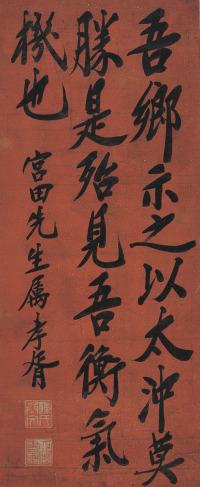 吾鄉示之以太沖莫
勝是殆見吾衡氣
機也
宮田先生屬孝胥